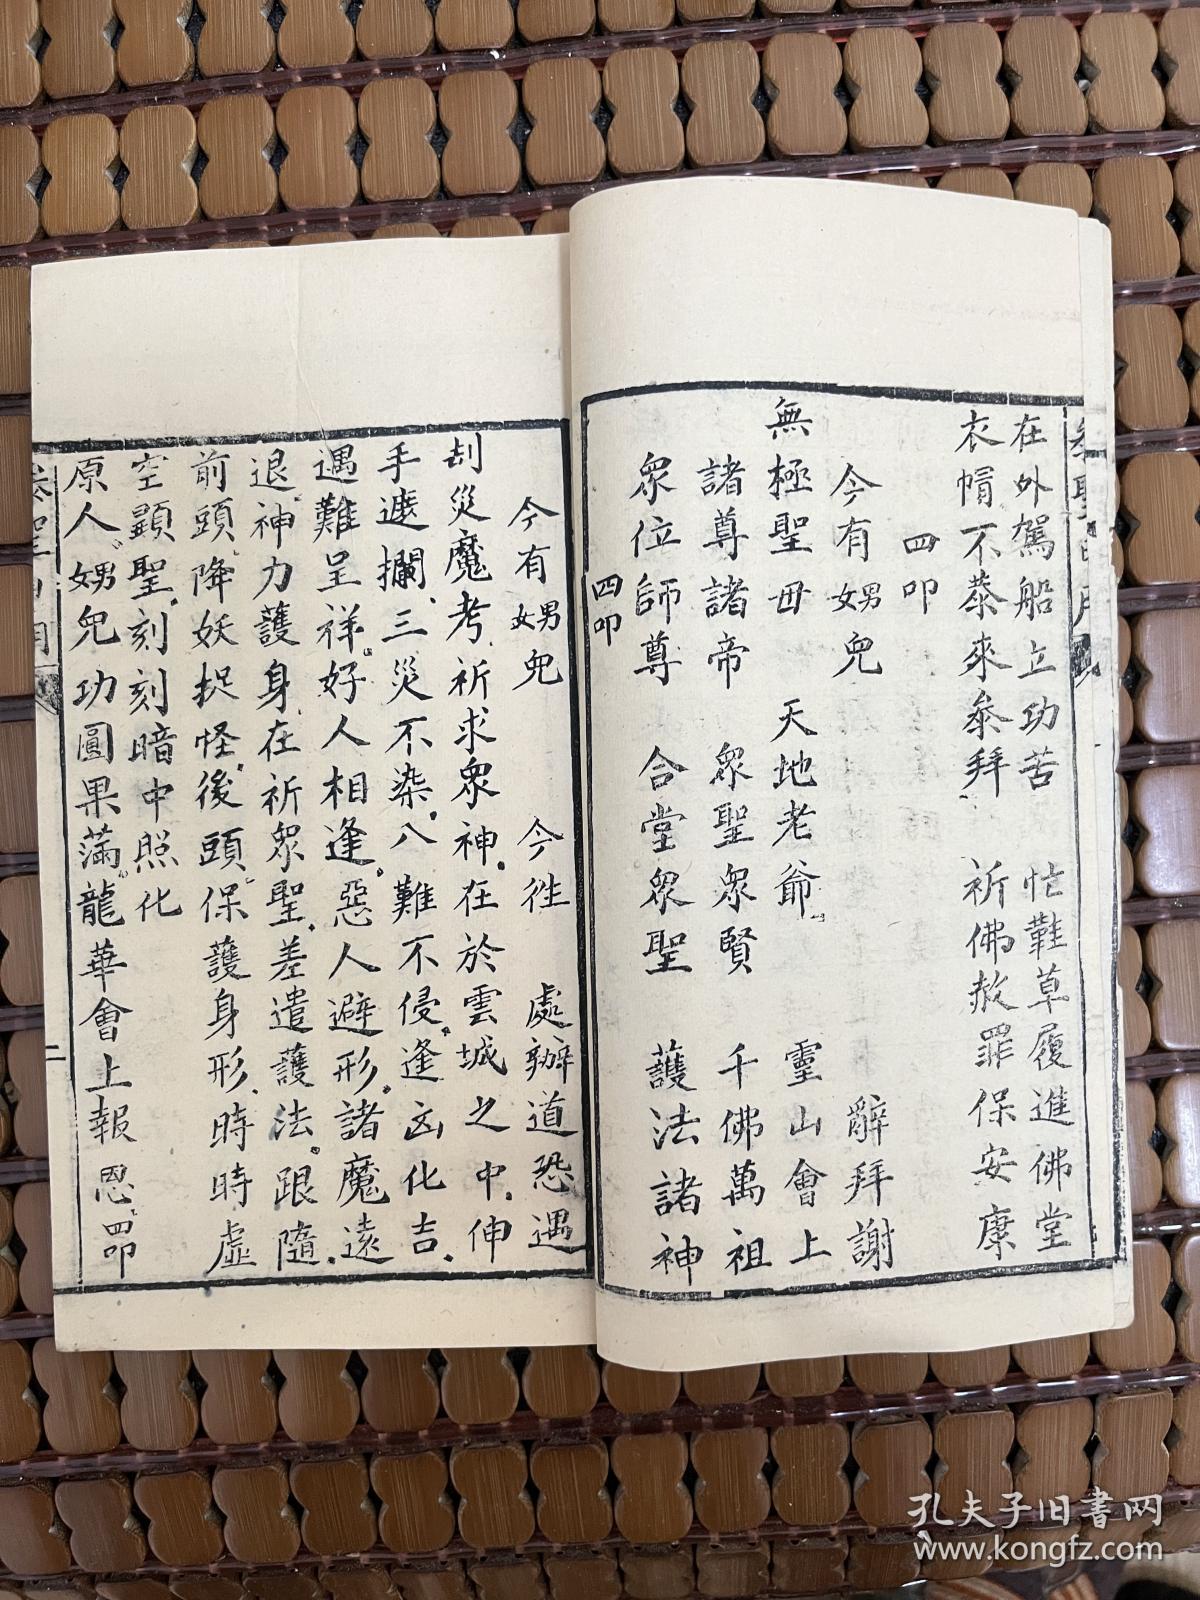 在外駕船立功苦 忙鞋草履進佛堂
衣帽不恭來叅拜 祈佛赦罪保安康
四叩
今有男女兒 辭拜謝
無極聖毋 天地老爺 靈山會上
諸尊諸帝 眾聖眾賢 千佛萬祖
眾位師尊 合堂眾聖 護法諸神
四叩
今有男女兒 今徃 處辦道恐遇
刮災魔考祈求眾神在於雲城之中伸
手遮攔三災不染八難不侵逢凶化吉
遇難呈祥好人相逢惡人避形諸魔遠
退神力護身在祈眾聖差遣護法跟隨
前頭降妖捉怪後頭保護身形時時虛
空顯聖刻刻暗中照化
原人男女兒功圓果滿龍華會上報恩四叩
二
孔夫子旧书网
www.kongfz.com